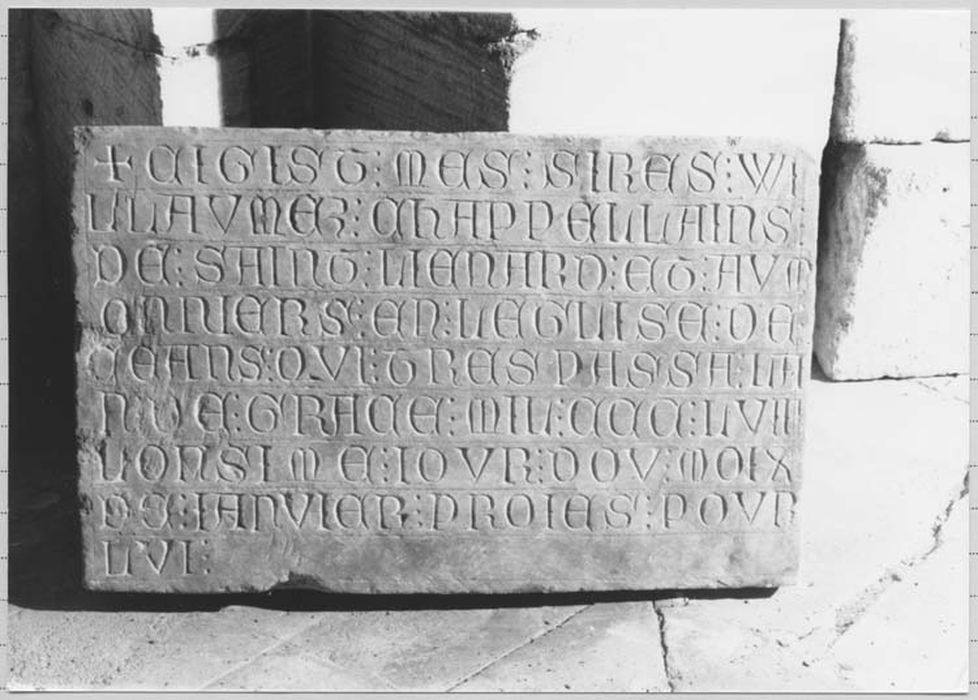 + CI GIST : MES : SIRES : WI
LLAVMEZ : CHAPPELLAINS :
DE : SAINT : LIENARD : ET : AVM
ONNIERS : EN : LEGLISE : DE
CEANS : QVI : TRESPASSA : LA
N DE : GRACE : MIL : CCCC : LVIII
LONSIME : IOVR : DOV : MOIX
DE : IANVIER : PROIES : POVR
LVI :